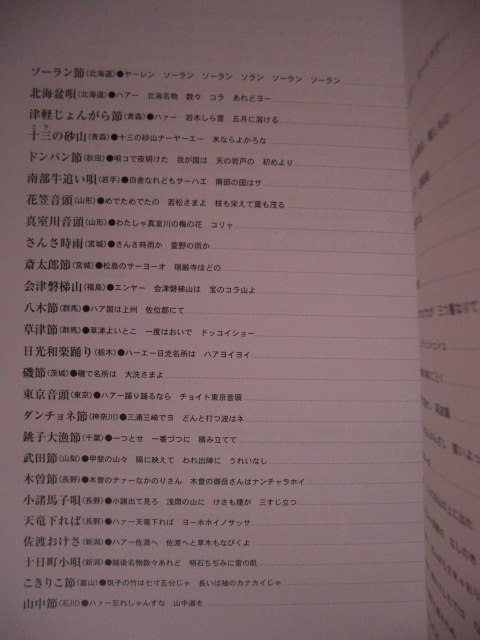 ソーラン節(北海道)●ヤーレン ソーラン ソーラン ソラン ソーラン ソーラン
北海盆唄(北海道)●ハアー 北海名物 数々 コラ あれどヨー
津軽じょんがら節(青森)●ハァー 岩木しら雪 五月に溶ける
十三の砂山(青森)●十三の砂山ナーヤーエー 米ならよかろな
ドンパン節(秋田)●唄コで夜明けた 我が国は 天の岩戸の 初めより
南部牛追い唄(岩手)●田舎なれどもサーハエ 南部の国はサ
花笠音頭(山形)●めでためでたの 若松さまよ 枝も栄えて葉も茂る
真室川音頭(山形)●わたしゃ真室川の梅の花 コリャ
さんさ時雨(宮城)●さんさ時雨か 萱野の雨か
斎太郎節(宮城)●松島のサーヨーオ 瑞巌寺ほどの
会津磐梯山(福島)●エンヤー 会津磐梯山は 宝のコラ山よ
八木節(群馬)●ハア国は上州 佐位郡にて
草津節(群馬)●草津よいとこ 一度はおいで ドッコイショー
日光和楽踊り(栃木)●ハーエー日光名所は ハアヨイヨイ
磯節(茨城)●磯で名所は 大洗さまよ
東京音頭(東京)●ハアー踊り踊るなら チョイト東京音頭
ダンチョネ節(神奈川)●三浦三崎でヨ どんと打つ波はネ
銚子大漁節(千葉)●一つとせ 一番づつに 積み立てて
武田節(山梨)●甲斐の山々 陽に映えて われ出陣に うれいなし
木曽節(長野)●木曽のナァーなかのりさん 木曽の御岳さんはナンチャラホイ
小諸馬子唄(長野)●小諸出て見ろ 浅間の山に けさも煙が 三すじ立つ
天竜下れば(長野)●ハァー天竜下れば ヨーホホイノサッサ
佐渡おけさ(新潟)●ハアー佐渡へ 佐渡へと草木もなびくよ
十日町小唄(新潟)●越後名物数々あれど 明石ちぢみに雪の肌
こきりこ節(富山)●筑子の竹は七寸五分じゃ 長いは袖のカナカイじゃ
山中節(石川)●ハァー忘れしゃんすな 山中道を